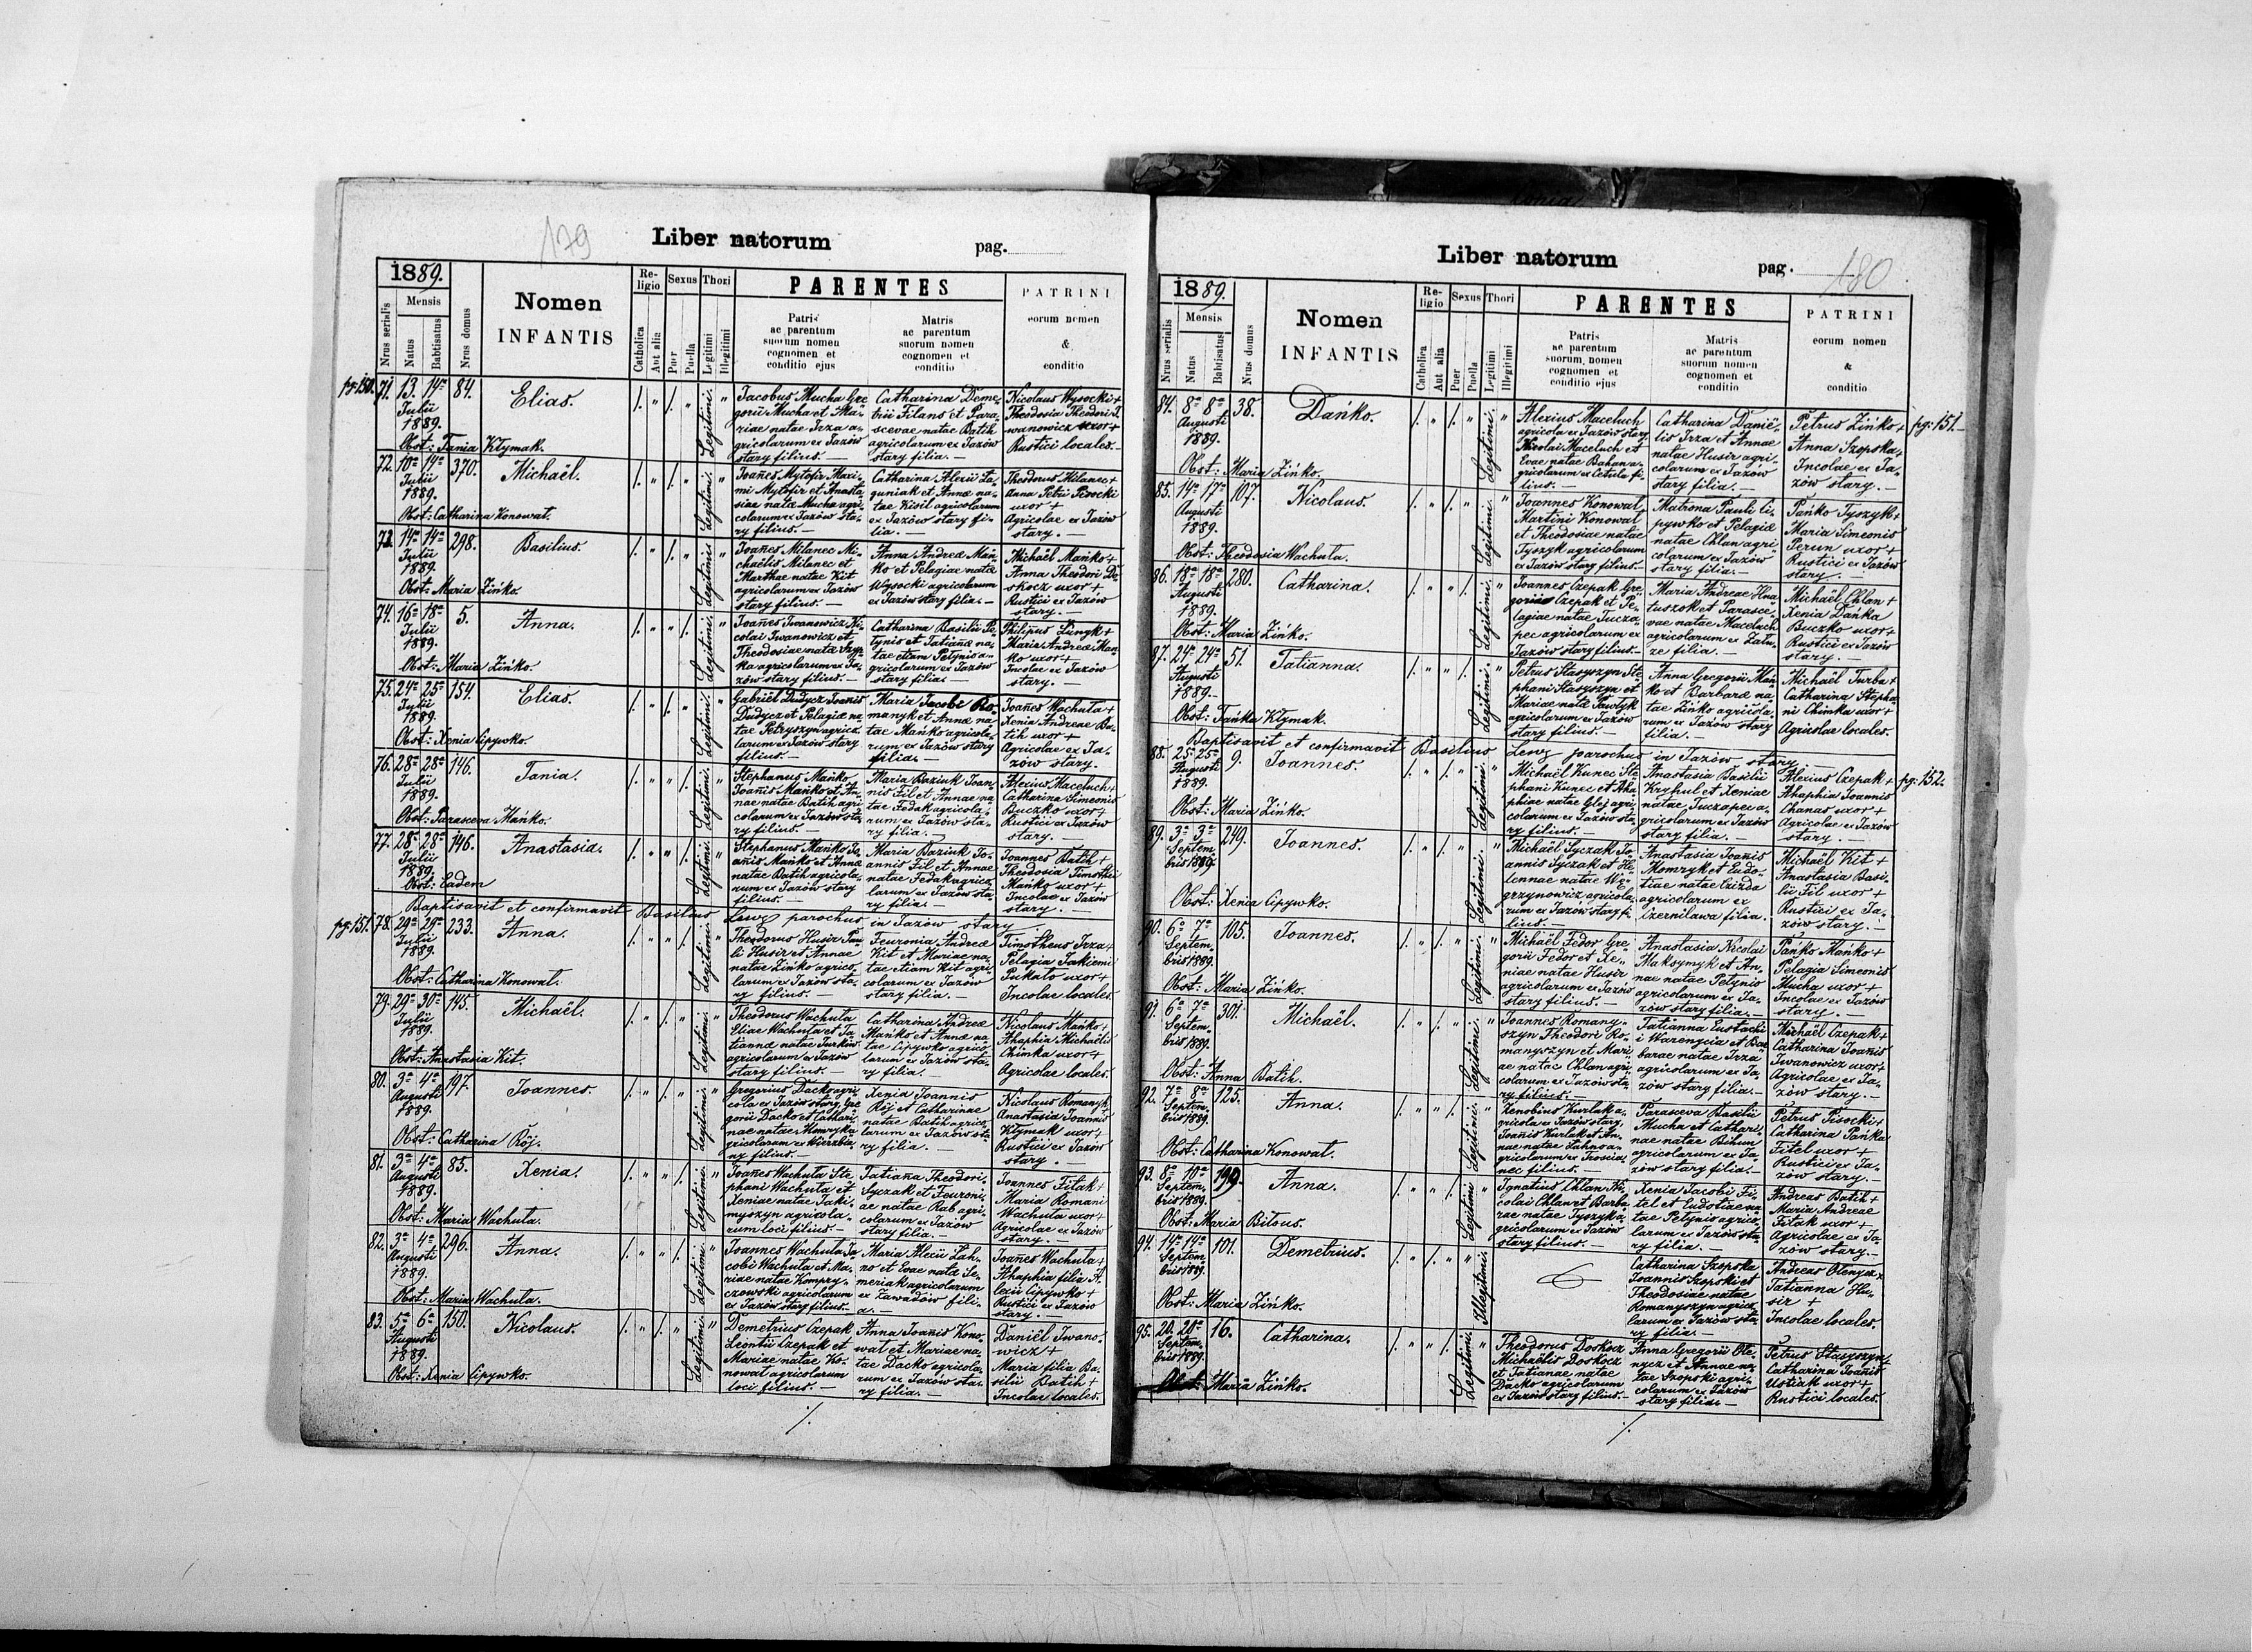 179
Liber natorum
pag.
1889.
Nrus serialis
Mensis
Natus
Babtisatus
Nrus domus
Nomen
INFANTIS
Religio
Catholica
Aut alia
Sexus
Puer
Puella
Thori
Legitimi
Illegitimi
PARENTES
Patris
ac parentum
suorum nomen
cognomen et
conditio ejus
Matris
ac parentum
suorum nomen
cognomen et
conditio
PATRINI
eorum nomen
&
conditio
pg: 150. 71. 13. 14ª 84. Elias.
Julii
1889.
Obst: Tania Kłymak.
Legitimi.
Jacobus Mucha Gre
gorii Mucha et Ma-
riae natae Irza a-
gricolarum ex Jazów
stary filius. —
Catharina Deme-
trii Filans et Para-
scevae natae Batih
agricolarum ex Jazów
stary filia. —
Nicolaus Wysocki +
Theodosia Theodori I-
wanowicz uxor +
Rustici locales. —
72. 10ª 14ª 370. Michaël.
Julii
1889.
Obst: Catharina Konowat.
Legitimi.
Joañes Mytofir Maxi-
mi Mytofir et Anasta
siae natæ Mucha agri-
colarum ex Jazów sta-
ry filius. —
Catharina Alexii Ła-
guniak et Annæ na-
tae Kisil agricolarum
ex Jazów stary fi-
lia. —
Theodorus Milanec +
Anna Petri Pisocki
uxor +
Agricolae ex Jazów
stary. —
73. 14ª 14ª 298. Basilius.
Julii
1889.
Obst: Maria Zińko.
Legitimi.
Joañes Milanec Mi-
chaëlis Milanec et
Marthae natae Kit
agricolarum ex Jazów
stary filius. —
Anna Andreæ Mań
ko et Pelagiae natæ
Wysocki agricolarum
ex Jazów stary filia. —
Michaël Mańko +
Anna Theodori Do
skocz uxor +
Rustici ex Jazów
stary. —
74. 16ª 18ª 5. Anna.
Julii
1889.
Obst: Maria Zińko.
Legitimi.
Joañes Iwanowicz Ni-
colai Iwanowicz et
Theodosiae natæ Szop-
ka agricolarum ex Ja-
zów stary filius. —
Catharina Basilii Pe
tynio et Tatiannæ na-
tae etiam Petynio a-
gricolarum ex Jazów
stary filia. —
Philipus Lunyk +
Maria Andreæ Mań-
ko uxor +
Incolae ex Jazów
stary. —
75. 24ª 25ª 154. Elias.
Julii
1889.
Obst: Xenia Cipywko.
Legitimi.
Gabriël Dudycz Joañis
Dudycz et Pelagiæ na
tae Petryszyn agrico
larum ex Jazów stary
filius. —
Maria Jacobi Ro-
manyk et Annæ na
tae Mańko agricola-
rum ex Jazów stary
filia. —
Joañes Wachuta +
Xenia Andreae Ba-
tih uxor +
Agricolae ex Ja-
zów stary. —
76. 28ª 28ª 146. Tania.
Julii
1889.
Obst: Parasceva Mańko.
Legitimi.
Stephanus Mańko
Joañis Mańko et An-
nae natae Batih agri-
colarum ex Jazów sta-
ry filius. —
Maria Baziuk Joan-
nis Fil et Annae na
tae Fedak agricola-
rum ex Jazów sta-
ry filia. —
Alexius Maceluch +
Catharina Simeonis
Buczko uxor +
Rustici ex Jazów
stary. —
77. 28ª 28ª 146. Anastasia.
Julii
1889.
Obst: Eadem
Legitimi.
Stephanus Mańko Jo-
añis Mańko et Annæ
natae Batih agricola-
rum ex Jazów stary
filius. —
Maria Baziuk Jo-
annis Fil et Annae
natae Fedak agrico
larum ex Jazów sta-
ry filia. —
Joannes Batih +
Theodosia Timothei
Mańko uxor +
Incolae ex Jazów
stary. —
Baptisavit et confirmavit Basilius Lewz parochus in Jazów stary.
pg: 151. 78. 29ª 29ª 233. Anna.
Julii
1889.
Obst: Catharina Konowat.
Legitimi.
Theodorus Husir Pau
li Husir et Annae
natae Zińko agrico
larum ex Jazów sta-
ry filius. —
Feuronia Andreæ
Kit et Mariae na-
tae etiam Kit agri
colarum ex Jazów
stary filia. —
Timotheus Irza +
Pelagia Jakiemi
Pukało uxor +
Incolae locales.
79. 29ª 30ª 145. Michaël.
Julii
1889.
Obst: Anastasia Kit.
Legitimi.
Theodorus Wachuta
Eliae Wachuta et Ta-
tiannæ natae Jurków
agricolarum ex Jazów
stary filius. —
Catharina Andreæ
Mańko et Annæ na
tae Cipywko agrico
larum ex Jazów sta-
ry filia. —
Nicolaus Mańko +
Ahaphia Michaëlis
Chimka uxor +
Agricolae locales.
80. 3ª 4ª 197. Joannes.
Augusti
1889.
Obst: Catharina Rój.
Legitimi.
Gregorius Dacko agri-
cola ex Jazów stary, Gre
gorii Dacko et Cathari-
nae natae Momryk a-
gricolarum ex Wierzbia-
ny filius. —
Xenia Joannis
Rój et Catharinae
natae Batih agrico
larum ex Jazów sta
ry filia. —
Nicolaus Romanyk
Anastasia Joannis
Kłymak uxor +
Rustici ex Jazów
stary. —
81. 3ª 4ª 85. Xenia.
Augusti
1889.
Obst: Maria Wachuta.
Legitimi.
Joañes Wachuta Ste
phani Wachuta et
Xeniae natae Jaki-
myszyn agricola-
rum loci filius. —
Tatiaña Theodori
Syczak et Feuroni-
ae natae Rab agri-
colarum ex Jazów
stary filia. —
Joannes Fitak +
Maria Romani
Wachuta uxor +
Agricolae ex Jazów
stary. —
82. 3ª 4ª 296. Anna.
Augusti
1889.
Obst: Maria Wachuta.
Legitimi.
Joannes Wachuta Ja
cobi Wachuta et Ma-
riae natae Kompry-
czowski agricolarum
ex Jazów stary filius. —
Maria Alexii Lah-
no et Evae natæ Se-
meriak agricolarum
ex Zawadów fili-
a. —
Joañes Wachuta +
Ahaphia filia A-
lexii Cipywko +
Rustici ex Jazów
stary. —
83. 5ª 6ª 150. Nicolaus.
Augusti
1889.
Obst: Xenia Cipywko.
Legitimi.
Demetrius Czepak
Leontii Czepak et
Mariae natae Ko-
nowat agricolarum
loci filius. —
Anna Joañis Kono-
wat et Mariae na-
tae Dacko agricola-
rum ex Jazów sta-
ry filia. —
Daniël Iwano-
wicz +
Maria filia Ba-
silii Batih +
Incolae locales.
Liber natorum
pag. 180
1889.
Nrus serialis
Mensis
Natus
Babtisatus
Nrus domus
Nomen
INFANTIS
Religio
Catholica
Aut alia
Sexus
Puer
Puella
Thori
Legitimi
Illegitimi
PARENTES
Patris
ac parentum
suorum nomen
cognomen et
conditio ejus
Matris
ac parentum
suorum nomen
cognomen et
conditio
PATRINI
eorum nomen
&
conditio
84. 8ª 8ª 38. Dańko.
Augusti
1889.
Obst: Maria Zińko.
Legitimi.
Alexius Maceluch
agricola ex Jazów stary
Nicolai Maceluch et
Evae natae Bahan a-
gricolarum ex Cetula fi-
lius. —
Catharina Danië-
lis Irza et Annae
natae Husir agri-
colarum ex Jazów
stary filia. —
Petrus Zińko +
Anna Szopska +
Incolae ex Ja-
zów stary. —
pg: 151. —
85. 14ª 17ª 107. Nicolaus.
Augusti
1889.
Obst: Theodosia Wachuta.
Legitimi.
Joannes Konowat
Martini Konowat
et Theodosiae natae
Tyszyk agricolarum
ex Jazów stary filius. —
Matrona Pauli Ci-
pywko et Pelagiæ
natae Chlan agri
colarum ex Jazów
stary filia. —
Pańko Tyszyk +
Maria Simeonis
Perun uxor +
Rustici ex Jazów
stary. —
86. 18ª 18ª 280. Catharina.
Augusti
1889.
Obst: Maria Zińko.
Legitimi.
Joannes Czepak Gre-
gorii Czepak et Pe-
lagiae natae Tucza-
pec agricolarum ex
Jazów stary filius. —
Maria Andreae Hna
tuszok et Parasce-
vae natae Maceluch
agricolarum ex Zału-
że filia. —
Michaël Chlan +
Xenia Dańka
Buczko uxor +
Rustici ex Jazów
stary. —
87. 24ª 24ª 51. Tatianna.
Augusti
1889.
Obst: Tańka Kłymak.
Legitimi.
Petrus Stasyszyn Ste-
phani Stasyszyn et
Mariae natæ Pawłyk
agricolarum ex Jazów
stary filius. —
Anna Gregorii Mań
ko et Barbaræ na-
tae Zińko agricola-
rum ex Jazów stary
filia. —
Michaël Turba +
Catharina Stepha-
ni Chimka uxor +
Agricolae locales.
Baptisavit et confirmavit Basilius Lewz parochus in Jazów stary. —
88. 25ª 25ª 9. Joannes.
Augusti
1889.
Obst: Maria Zińko.
Legitimi.
Michaël Kunec Ste
phani Kunec et Aha
phiae natae Glej agri-
colarum ex Jazów sta
ry filius. —
Anastasia Basilii
Kryhul et Xeniae
natae Tuczapec a-
gricolarum ex Jazów
stary filia. —
Alexius Czepak +
Ahaphia Joannis
Chanas uxor +
Agricolae ex Jazów
stary. —
pg: 152.
89. 3ª 3ª 249. Joannes.
Septem-
bris 1889.
Obst: Xenia Cipywko.
Legitimi.
Michaël Syczak Jo-
annis Syczak et He-
lennae natae Wę-
grzynowicz agricola-
rum ex Jazów stary fi-
lius. —
Anastasia Joañis
Momryk et Eudo-
tiae natae Czizda
agricolarum ex
Czernilawa filia. —
Michaël Kit +
Anastasia Basi-
lii Fil uxor +
Rustici ex Ja-
zów stary. —
90. 6ª 7ª 105. Joannes.
Septem-
bris 1889.
Obst: Maria Zińko.
Legitimi.
Michaël Fedor Gre-
gorii Fedor et Xe-
niae natae Husir
agricolarum ex Jazów
stary filius. —
Anastasia Nicolai
Maksymyk et An-
nae natae Petynio
agricolarum ex Ja-
zów stary filia. —
Pańko Mańko +
Pelagia Simeonis
Mucha uxor +
Incolae ex Jazów
stary. —
91. 6ª 7ª 301. Michaël.
Septem-
bris 1889.
Obst: Anna Batih.
Legitimi.
Joannes Romany-
szyn Theodori Ro-
manyszyn et Mari
ae natae Chlan agri-
colarum ex Jazów sta-
ry filius. —
Tatianna Eustachi
i Warenycia et Bar
barae natae Irza
agricolarum ex Ja-
zów stary filia. —
Michaël Czepak +
Catharina Joañis
Iwanowicz uxor +
Agricolae ex Ja-
zów stary. —
92. 7ª 8ª 125. Anna.
Septem-
bris 1889.
Obst: Catharina Konowat.
Legitimi.
Zenobius Kurlak a-
gricola ex Jazów stary,
Joañis Kurlak et An-
nae natae Lahno a-
gricolarum ex Trościa-
nec filius. —
Parasceva Basilii
Mucha et Cathari-
nae natae Bihun
agricolarum ex Ja-
zów stary filia. —
Petrus Pisocki +
Catharina Pańka
Fitel uxor +
Rustici ex Ja-
zów stary. —
93. 8ª 10ª Anna.
Septem-
bris 1889.
Obst: Maria Bitous.
Legitimi
Ignatius Chlan Ni-
colai Chlan et Barba
rae natae Tyszyk a-
gricolarum ex Jazów
stary filius. —
Xenia Jacobi Fi-
tel et Eudotiae na
tae Petynio agrico-
larum ex Jazów sta-
ry filia. —
Andreas Batih +
Maria Andreae
Fitak uxor +
Agricolae ex Ja-
zów stary. —
94. 14ª 14ª 101. Demetrius.
Septem-
bris 1889.
Obst: Maria Zińko.
Illegitimi.
Catharina Szopska
Joannis Szopski et
Theodosiae natae
Romanyszyn agrico
larum ex Jazów sta-
ry filia. —
Andreas Olenycz +
Tatianna Hu-
sir +
Incolae locales.
95. 20. 20ª 16. Catharina.
Septem-
bris 1889.
Obst: Maria Zińko.
Legitimi.
Theodorus Doskocz
Michaëlis Doskocz
et Tatianae natae
Dacko agricolarum
ex Jazów stary filius. —
Anna Gregorii Ole-
nycz et Annae na-
tae Szopski agri-
colarum ex Jazów
stary filia. —
Petrus Stasyszyn +
Catharina Joañis
Ustiak uxor +
Rustici locales.